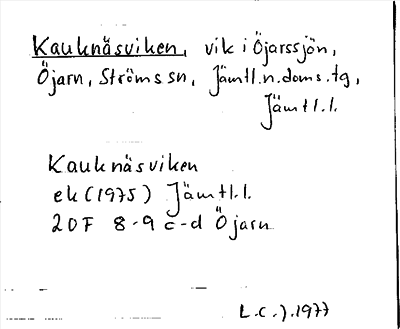 Kauknäsviken, vik i Öjarssjön,
Öjarn, Ströms sn, Jämtl.n.doms.tg,
Jämtl.l.
Kauknäsviken
ek (1975) Jämtl.l.
20F 8-9 c-d Öjarn
L.C.J.1977